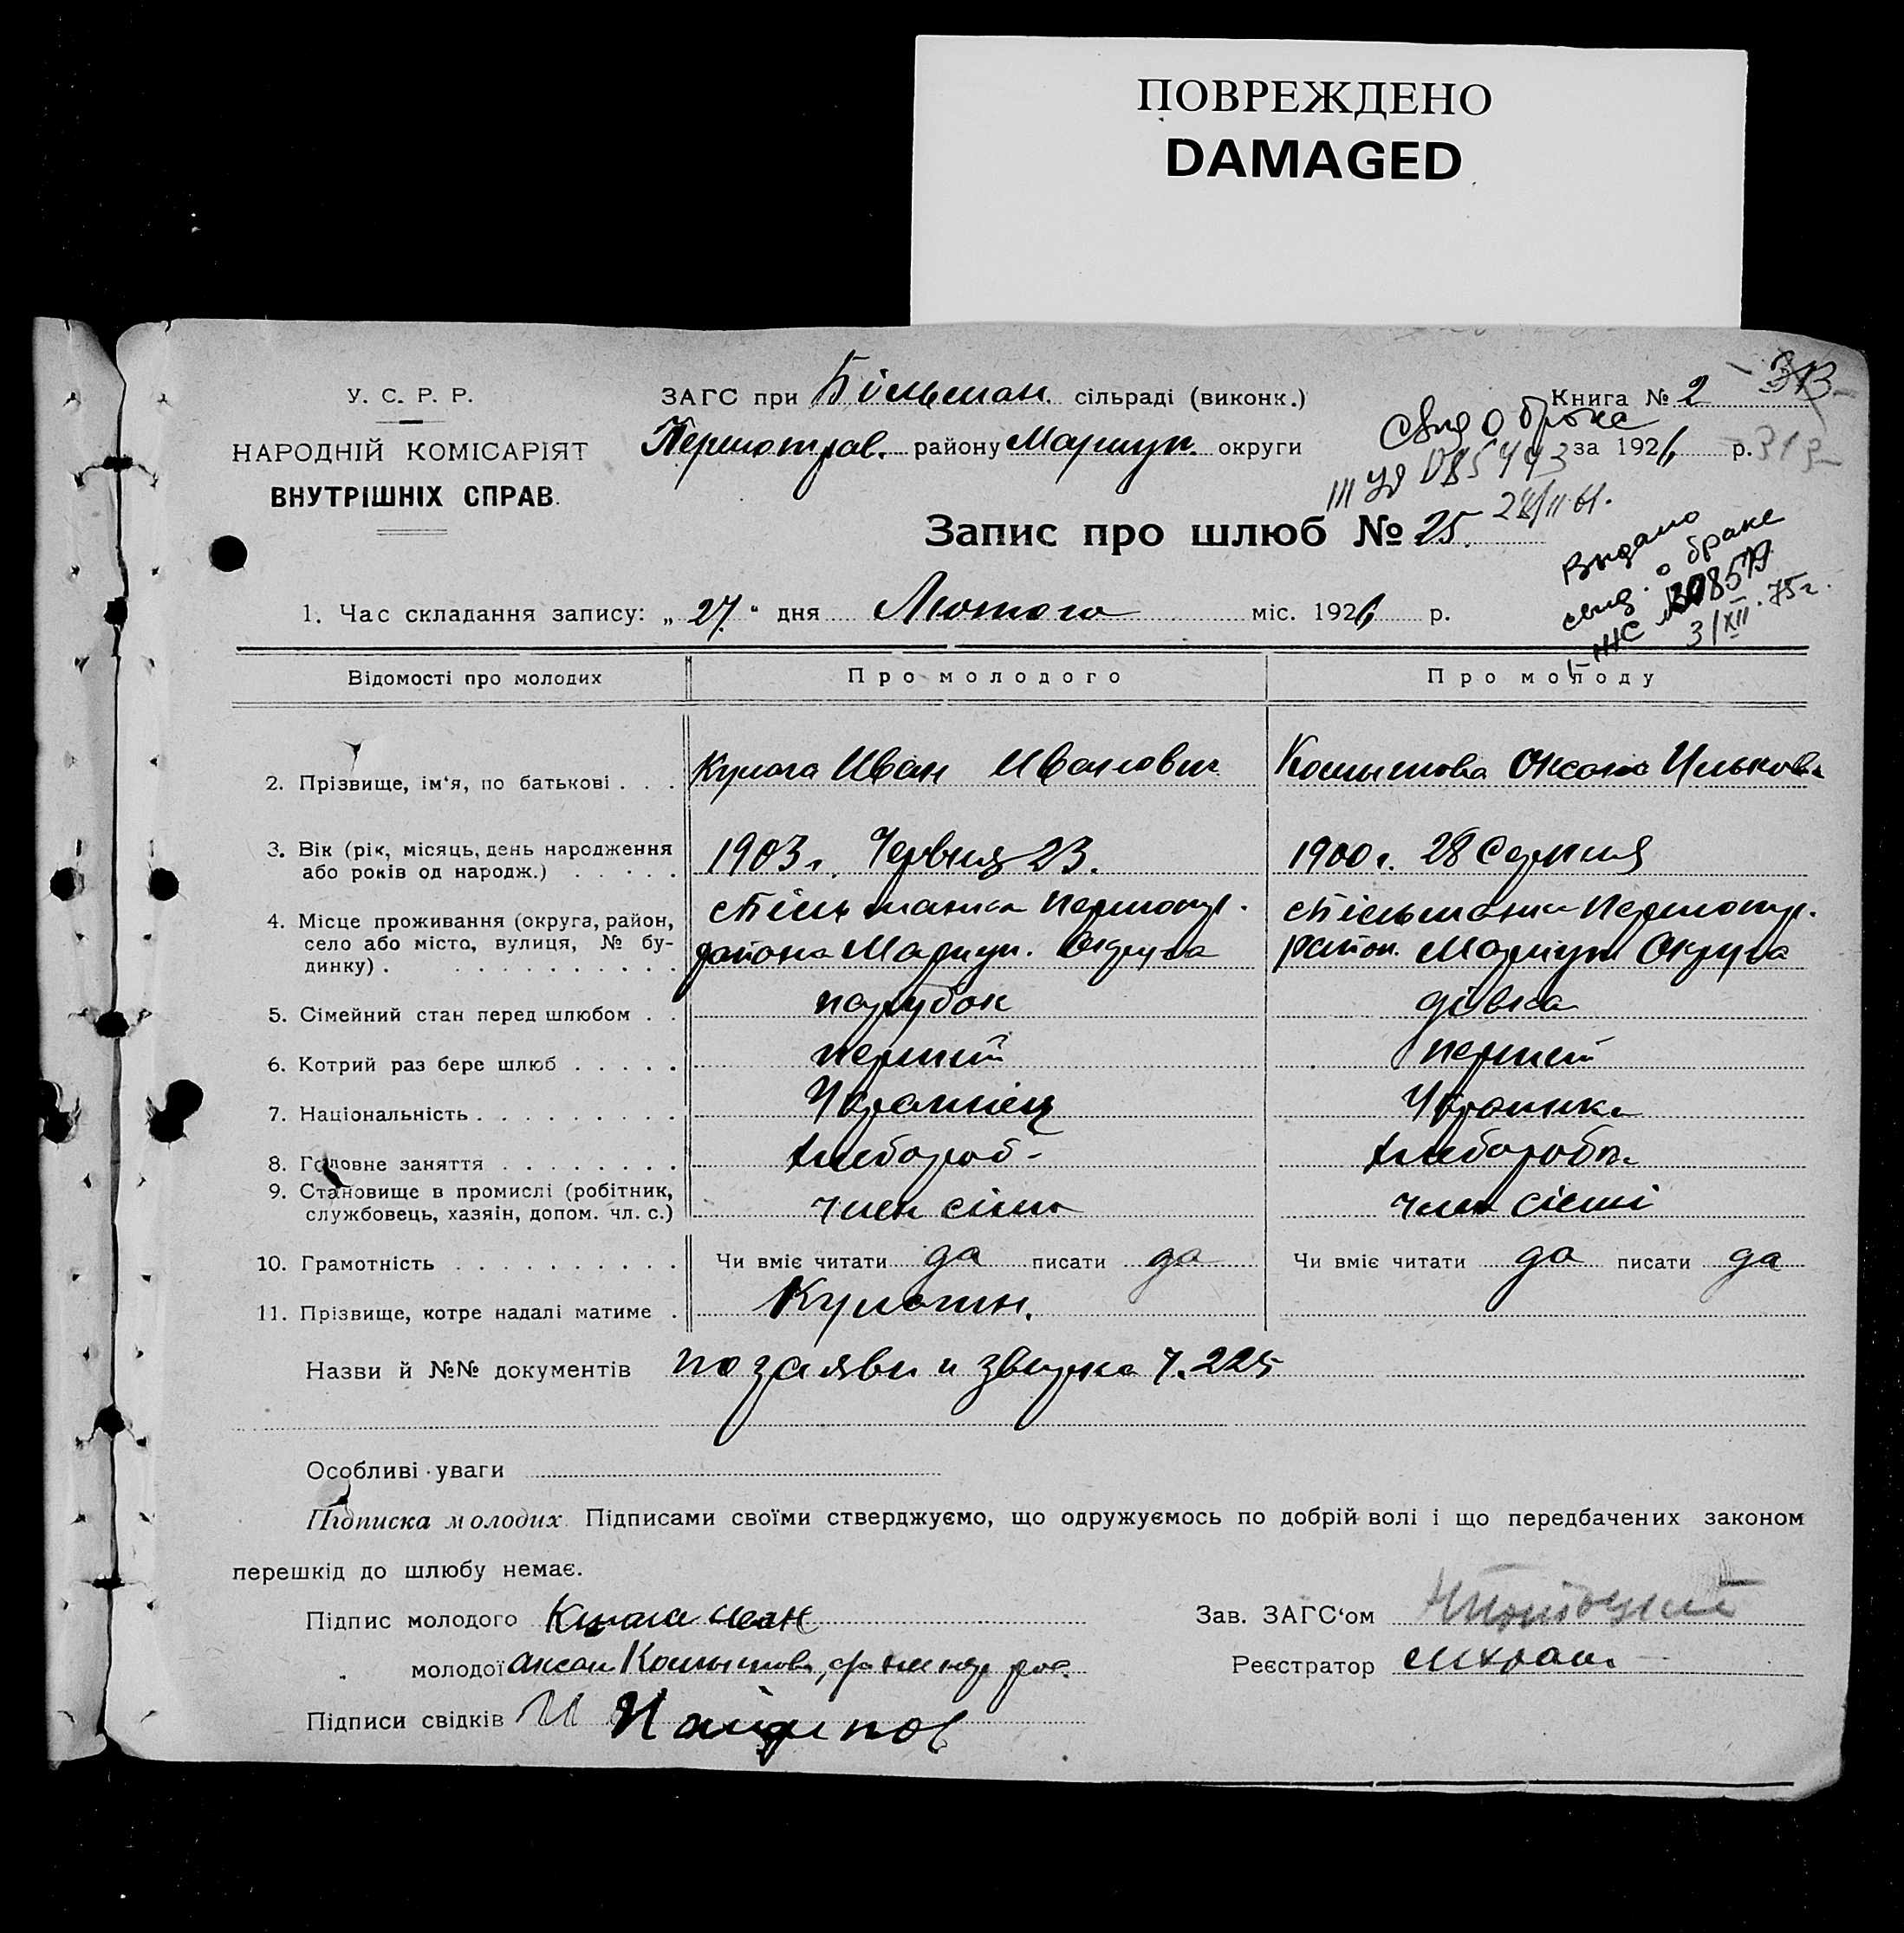 ПОВРЕЖДЕНО
DAMAGED
У. С. Р. Р.
НАРОДНІЙ КОМІСАРІЯТ
ВНУТРІШНІХ СПРАВ.
ЗАГС при Більшан. сільраді (виконк.)
Першотрав. району Маріуп. округи
Книга № 2 313
за 1926 р. 313
Свид о браке
III УЯ 085443
28/II 61.
Запис про шлюб № 25.
Видано
свид. о браке
3/XII.75г.
1. Час складання запису: „27.“ дня Лютого міс. 1926 р.
Відомості про молодих Про молодого Про молоду
2. Прізвище, ім‘я, по батькові . . . Кулага Иван Иванович Оксана
3. Вік (рік, місяць, день народження
або років од народж.) . . . . . 1903г. Червня 23. 1900г. 28 Серпня
4. Місце проживання (округа, район,
село або місто, вулиця, № бу-
динку) . . . . . . . . . . .
района Мариуп. Округа район. Мариуп Округа
5. Сімейний стан перед шлюбом . . парубок дівка
6. Котрий раз бере шлюб . . . . . перший перший
7. Національність . . . . . . . . . Україніец Українка
8. Головне заняття . . . . . . . . хлебороб- хлеборобка
9. Становище в промислі (робітник,
службовець, хазяїн, допом. чл. с.) член сімї член сіємі
10. Грамотність . . . . . . . . . . Чи вміє читати да писати да Чи вміє читати да писати да
11. Прізвище, котре надалі матиме .
Назви й №№ документів по заяви и 225
Особливі уваги
Підписка молодих. Підписами своїми стверджуємо, що одружуємось по добрій волі і що передбачених законом
перешкід до шлюбу немає.
Підпис молодого Кулага Иван Зав. ЗАГС‘ом
молодої Реєстратор
Підписи свідків